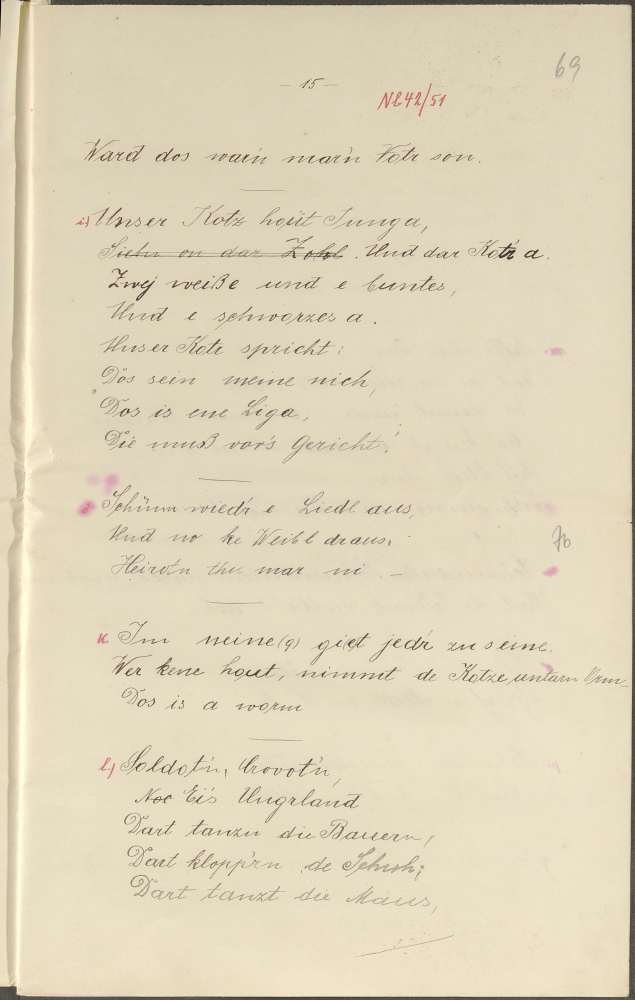 69
- 15 -
NL42/51
Ward dos warn mar'n Votr son.
i) Unser Kotz hoüt Junga,
Siehn on dar Zohl. Und dar Kotr a.
Zwej weiße und e buntes,
Und e schworzes a.
Unser Kotr spricht:
Dös sein meine nich,
Dos is ene Liga,
Die muß vor's Gericht!
Schünn wiedr e Liedl aus,
Und no ke Weibl draus,
Heirot'n thu mar ni. -
K Im neine(g) giet jedr zu seine.
Wer kene hout, nimmt de Kotze, untarn Orm
Dos is a worm
l) Soldot'n, Crovot'n,
Noc Ei's Ungrland
Dart tanzn die Bauern,
Dart klopp'rn de Schuh;
Dart tanzt die Maus,